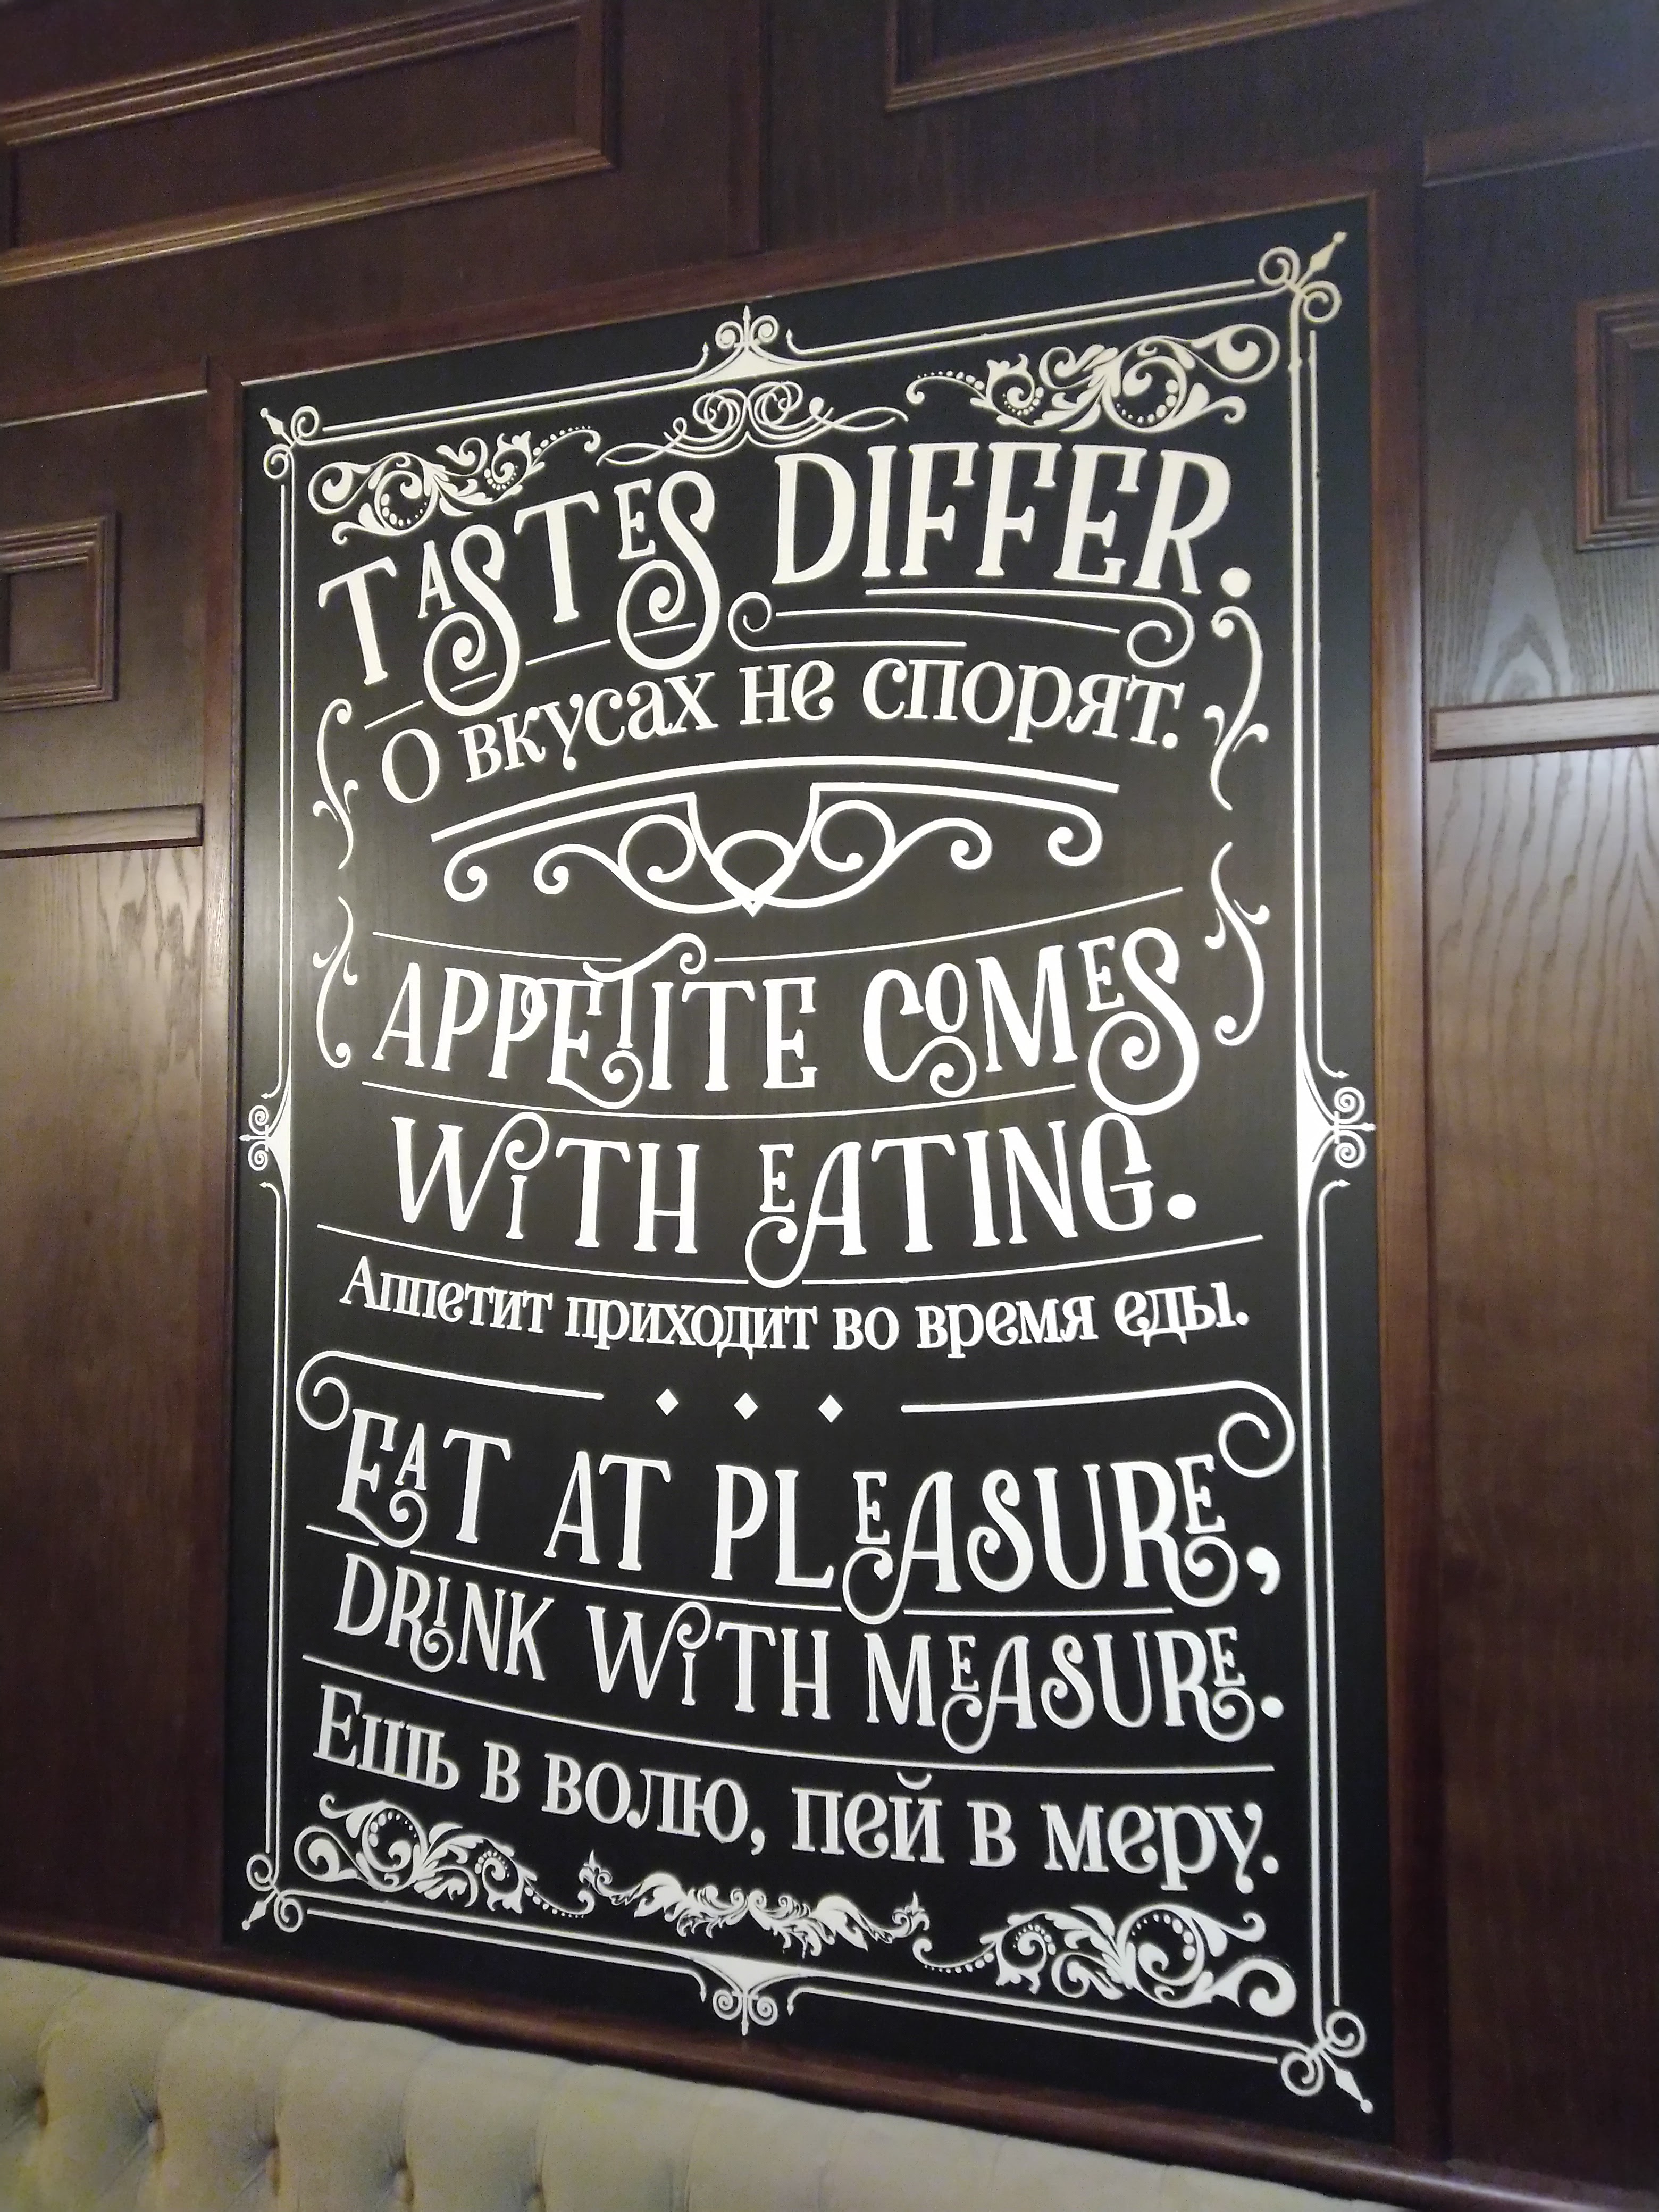 TASTES DIFFER.
О вкусах не спорят.
APPETITE COMES
WITH EATING.
Аппетит приходит во время еды.
EAT AT PLEASURE,
DRINK WITH MEASURE.
Ешь в волю, пей в меру.